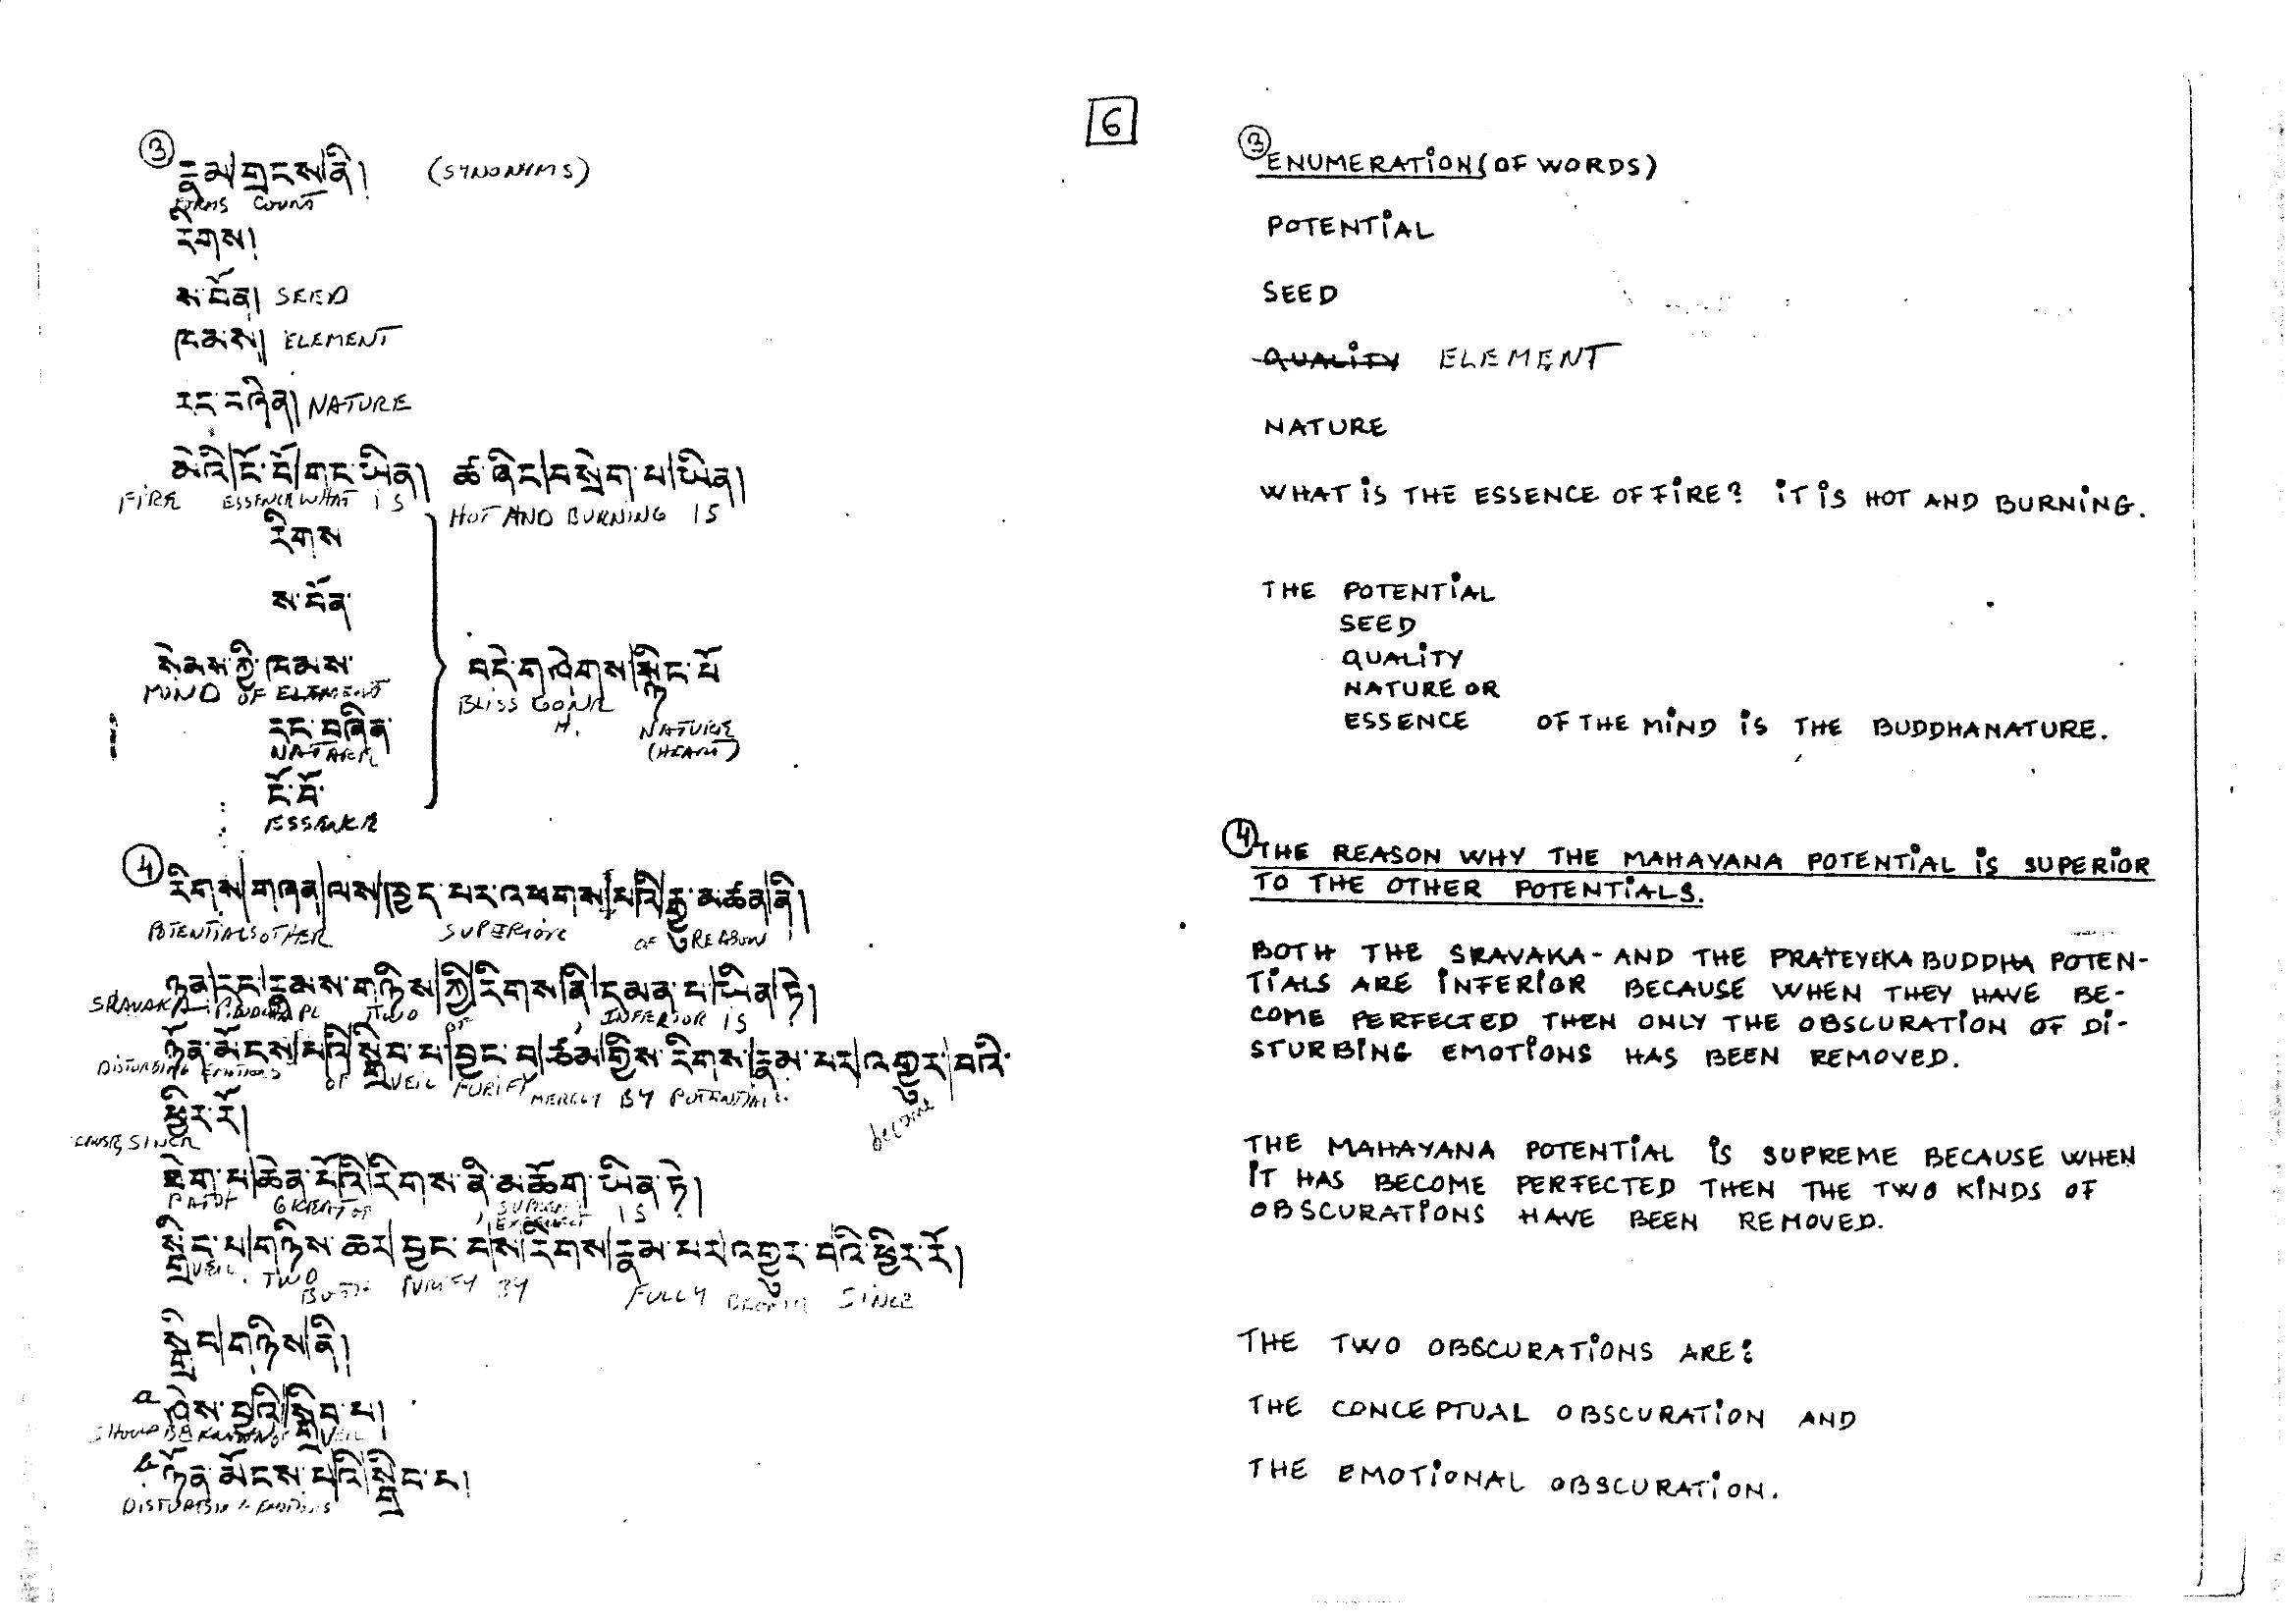 6
③
རྣམ|གྲངས|ནི། (SYNONYMS)
FORMS COUNT
རིགས།
ས་བོན། SEED
ཁམས། ELEMENT
རང་བཞིན། NATURE
མེའི|ངོ་བོ|གང་ཡིན། ཚ་ཞིང|བསྲེག་པ|ཡིན།
FIRE ESSENCE WHAT IS HOT AND BURNING IS
རིགས
ས་བོན་
སེམས་ཀྱི་ཁམས་ བདེ་གཤེགས|སྙིང་པོ
MIND OF ELEMENT BLISS GONE NATURE
H. (HEART)
རང་བཞིན་
ངོ་བོ་
④
རིགས|གཞན|ལས|ཁྱད་པར་འཕགས|པའི|རྒྱུ་མཚན|ནི།
POTENTIALS OTHER SUPERIOR OF REASON
ཉན|རང|རྣམས་གཉིས|ཀྱི|རིགས|ནི|དམན་པ|ཡིན|ཏེ།
SRAVAKA PL TWO OF INFERIOR IS
ཉོན་མོངས|པའི|སྒྲིབ་པ|བྱང་བ|ཙམ|གྱིས་རིགས|རྣམ་པར|འགྱུར|བའི་
DISTURBING EMOTIONS OF VEIL PURIFY MERELY BY POTENTIAL
become
ཕྱིར་རོ།
SINCE
ཐེག་པ|ཆེན་པོའི|རིགས་ནི་མཆོག་ཡིན་ཏེ།
PATH GREAT OF IS
སྒྲིབ་པ|གཉིས་ཆར|བྱང་བས|རིགས|རྣམ་པར|འགྱུར་བའི་ཕྱིར་རོ།
VEIL TWO BOTH PURIFY BY FULLY BECOME SINCE
སྒྲིབ|གཉིས|ནི།
a ཤེས་བྱའི|སྒྲིབ་པ།
b ཉོན་མོངས་པའི|སྒྲིབ་པ།
③ ENUMERATION (OF WORDS)
POTENTIAL
SEED
QUALITY ELEMENT
NATURE
WHAT IS THE ESSENCE OF FIRE? IT IS HOT AND BURNING.
THE POTENTIAL
SEED
QUALITY
NATURE OR
ESSENCE OF THE MIND IS THE BUDDHANATURE.
④ THE REASON WHY THE MAHAYANA POTENTIAL IS SUPERIOR
TO THE OTHER POTENTIALS.
BOTH THE SRAVAKA- AND THE PRATEYEKA BUDDHA POTEN-
TIALS ARE INFERIOR BECAUSE WHEN THEY HAVE BE-
COME PERFECTED THEN ONLY THE OBSCURATION OF DI-
STURBING EMOTIONS HAS BEEN REMOVED.
THE MAHAYANA POTENTIAL IS SUPREME BECAUSE WHEN
IT HAS BECOME PERFECTED THEN THE TWO KINDS OF
OBSCURATIONS HAVE BEEN REMOVED.
THE TWO OBSCURATIONS ARE:
THE CONCEPTUAL OBSCURATION AND
THE EMOTIONAL OBSCURATION.